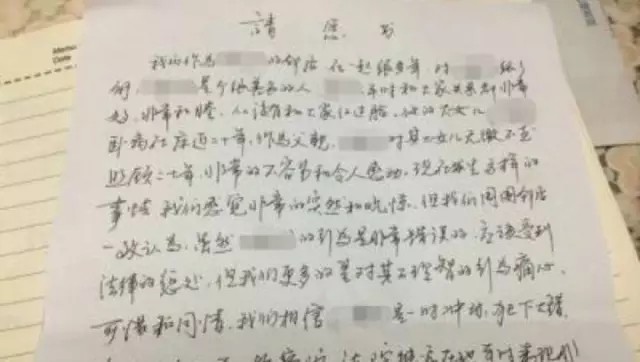 Memo
Date
請愿书
我们作为 的邻居在一起很多年,对 很了
解, 是个很善良的人, 年时和大家关系都非常
好,非常和睦,从没有和大家红过脸,他的大女儿
卧病在床近二十年,作为父亲, 对其大女儿无微不至
照顾二十年,非常的不容易和令人感动,现在发生这样的
事情我们感觉非常的突然和吃惊,但我们周围邻居
一致认为,虽然 的行为是非常错误的,应该受到
法律的惩处,但我们更多的是对其不理智的行为痛心,
可惜和同情,我们相信 是一时冲动,犯下大错,